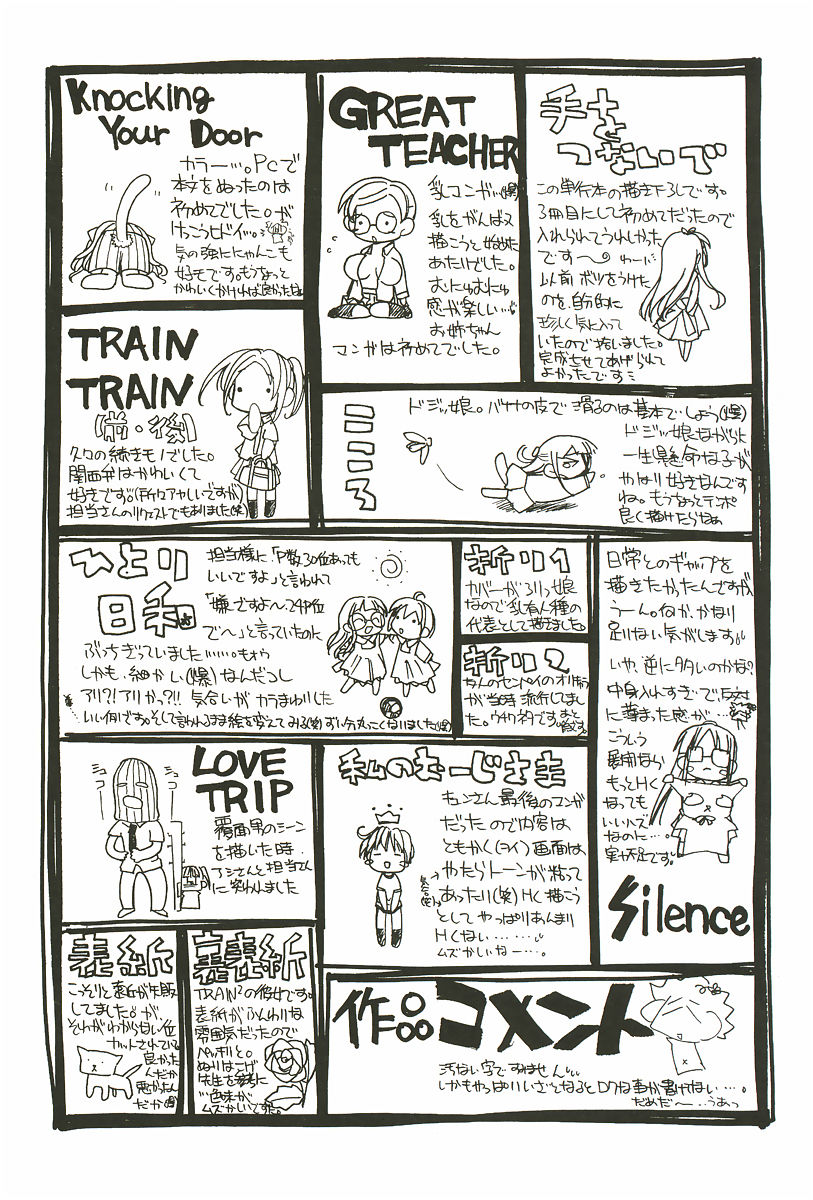 Knocking
Your Door
カラー…。PCで
本文をぬったのは
初めてでした。が
けっこうヒドイ…。
気の強いにゃんこも
好きです。もうちょっと
かわいくかければ良かったな
GREAT
TEACHER
乳コンが…(爆)
乳をがんばって
描こうと始めた
あたりでした。
むにゅむにゅ
感が楽しい…。
お姉ちゃん
マンガは初めてでした。
手を
つないで
この単行本の描き下ろしです。
3冊目にして初めてだったので
入れられてうれしかった
です〜
わーい
以前ボツをうけた
のを、自分的に
珍しく気に入って
いたので拾いました。
完成させてあげられて
よかったです
TRAIN
TRAIN
(前・後)
久々の続きモノでした。
関西弁はかわいくて
好きです。
担当さんのリクエストでもありました(笑)
こころ
ドジッ娘。バナナの皮で滑るのは基本でしょう(爆)
ドジッ娘ながらに
一生懸命な子が
かなり好きなんです
ね。もうちょっとテンポ
良く描けたらなぁ
ひとり
日和
担当様に「P数30位あっても
いいですよ」と言われて
「嫌ですよ〜。24P位
で〜」と言っていたのに
ぶっちぎっていました……。もぉぅ
しかも、細かい(爆)なんだっし
アリ?!アリかっ?!! 気合いがカラまわりした
いい例です。そして言われるまま絵を変えてみる(笑)ずい分丸っこくなりました(爆)
折り1
カバーがろりっ娘
なので乳有人種の
代表として描きました。
折り2
が当時流行してまし
た。
日常とのギャップを
描きたかったんですが
うーん。何か、かなり
足りない気がします。
いや、逆に多いのかな?
中身入れすぎで反対
に薄まった感が…
こういう
もっとH
なっても
いいハズ
なのに…。
Silence
LOVE
TRIP
シュコ
シュコ
覆面男のシーン
を描いた時、
アシさんと担当さん
に笑われました
私のおーじさま
キュンさん最後のマンガ
だったので内容は
ともかく(コイ)画面は
やたらトーンが粘って
あったり(笑)Hく描こう
としてやっぱりあんまり
Hくない……。
ムズかしいなー…。
表紙
こっそりと表紙が失敗
してました。が
それがわからない位
カットされていて
良かった
んだか
悪かったん
だか
裏表紙
TRAIN²の彼女です。
表紙がふんわりな
雰囲気だったので
ペッキリと。
色味が
ムズかしいです。
作品コメント
汚ない字ですみません
しかもやっぱりいざとなるとロクな事が書けない…。
だめだ〜…うあっ